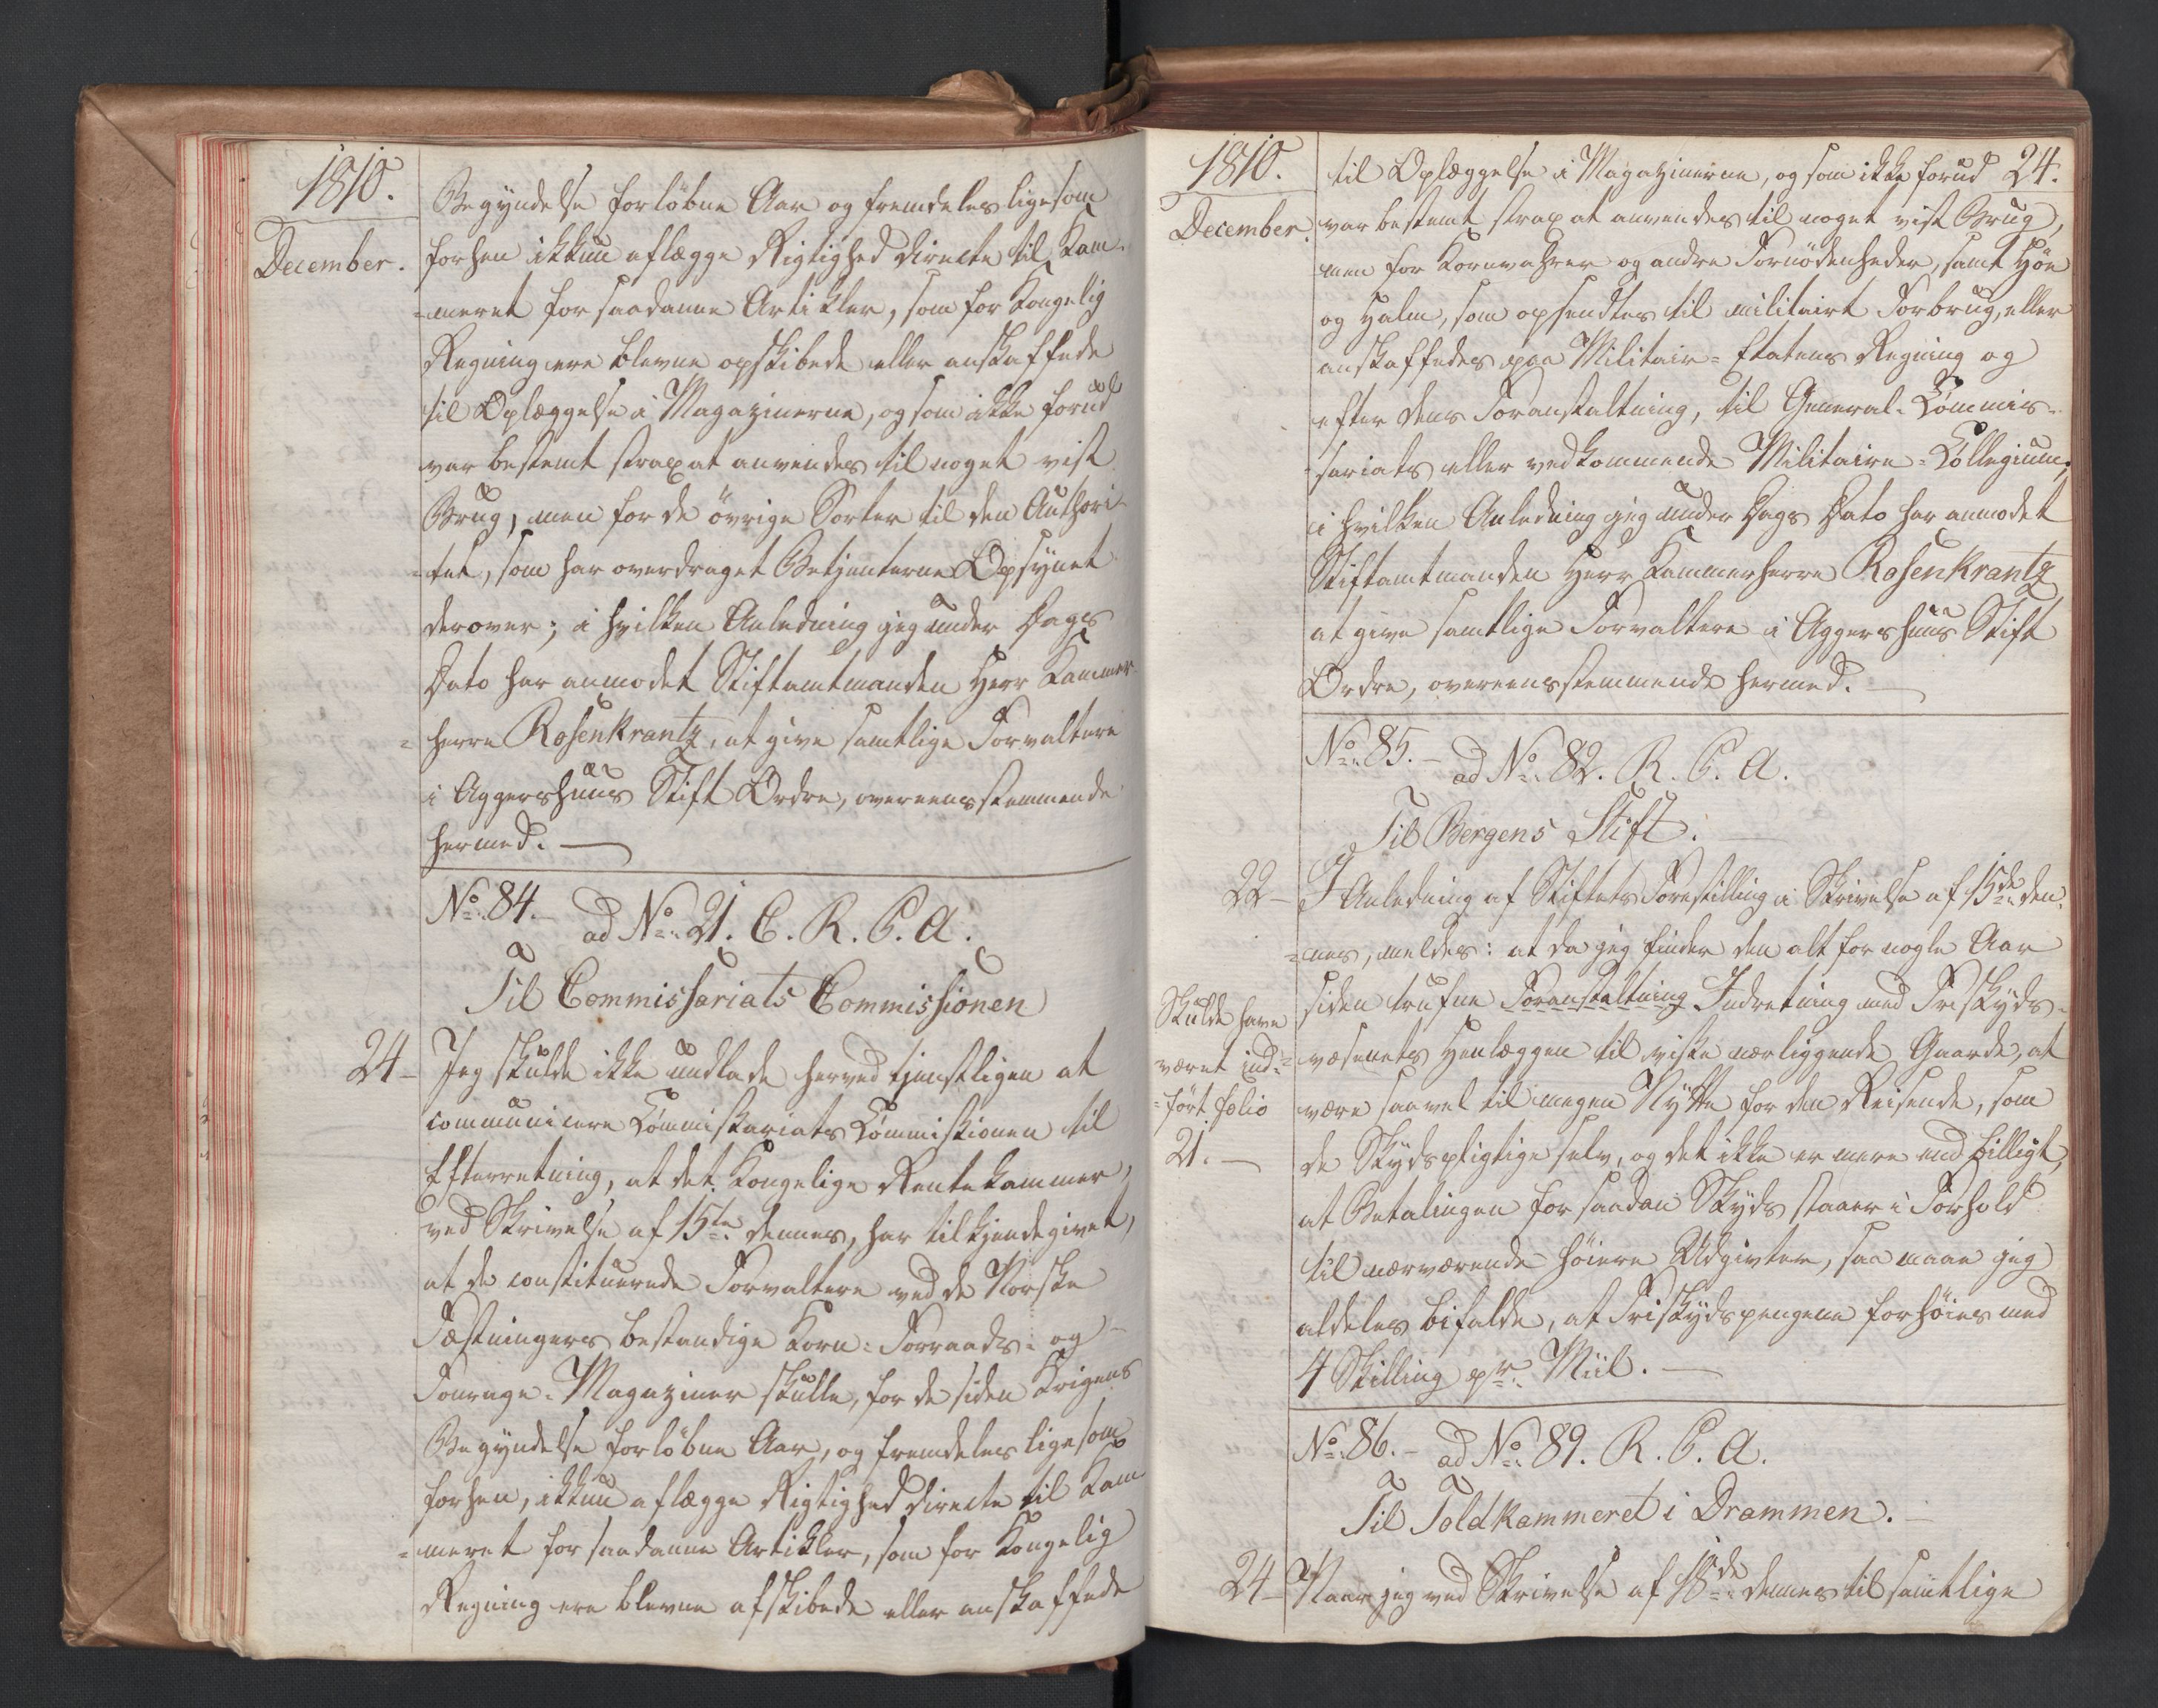 1810.
December.
Begyndelse forløbne Aar og fremdeles ligesom
forhen ikkun aflægge Rigtighed directe til Kam-
=meret for saadanne Artikler, som for Kongelig
Regning ere blevne opskibede eller anskaffede
til Oplæggelse i Magazinerne, og som ikke forud
var bestemt strax at anvendes til noget vist
Brug, men for de övrige Sorter til den Authori-
=tet, som har overdraget Betjenterne Opsynet
derover; i hvilken Anledning jeg under Dags
Dato har anmodet Stiftamtmanden Herr Kammer-
=herre Rosenkrantz, at give samtlige Forvaltere
i Aggershuus Stift Ordre, overeensstemmende
hermed.
No. 84. - ad No. 21. C. R. C. A.
Til Commissariats Commissionen
24 - Jeg skulde ikke undlade herved tjenstligen at
communicere Commissariats Commissionen til
Efterretning, at det Kongelige Rentekammer,
ved Skrivelse af 15te dennes, har tilkjendegivet,
at de constituerede Forvaltere ved de Norske
Fæstningers bestandige Korn- Forraads- og
Fourage-Magaziner skulle, for de siden Krigens
Begyndelse forløbne Aar, og fremdeles ligesom
forhen, ikkun aflægge Rigtighed directe til Kam-
=meret for saadanne Artikler, som for Kongelig
Regning ere blevne afskibede eller anskaffede
1810.
December.
24.
til Oplæggelse i Magazinerne, og som ikke forud
var bestemt strax at anvendes til noget vist Brug,
men for Kornvahrer og andre Fornödenheder, samt Höe
og Halm, som opsendtes til militairt Forbrug, eller
anskaffedes paa Militair-Etatens Regning og
efter dens Foranstaltning, til General-Commis-
=sariats eller vedkommende Militaire-Collegium;
i hvilken Anledning jeg under Dags Dato har anmodet
Stiftamtmanden Herr Kammerherre Rosenkrantz
at give samtlige Forvaltere i Aggershuus Stift
Ordre, overeensstemmende hermed.
No. 85. - ad No. 82. R. C. A.
Til Bergens Stift.
22 - I Anledning af Stiftets Forestilling i Skrivelse af 15de den-
=nes, meldes: at da jeg finder den alt for nogle Aar
siden trufne Foranstaltning Indretning med Friskyds-
=væsenets Henlæggen til visse nærliggende Gaarde, at
være saavel til megen Nytte for den Reisende, som
de Skydspligtige selv, og det ikke er mere end billigt,
at Betalingen for saadan Skyds staaer i Forhold
til nærværende høiere Udgivter, saa maae jeg
aldeles bifalde, at Friskydspengene forhøies med
4 Skilling pr. Miil.
Skulde have
været ind-
=fört folio
21.
No. 86. - ad No. 89. R. C. A.
Til Toldkammeret i Drammen.
24 - Naar jeg ved Skrivelse af 18de dennes til samtlige